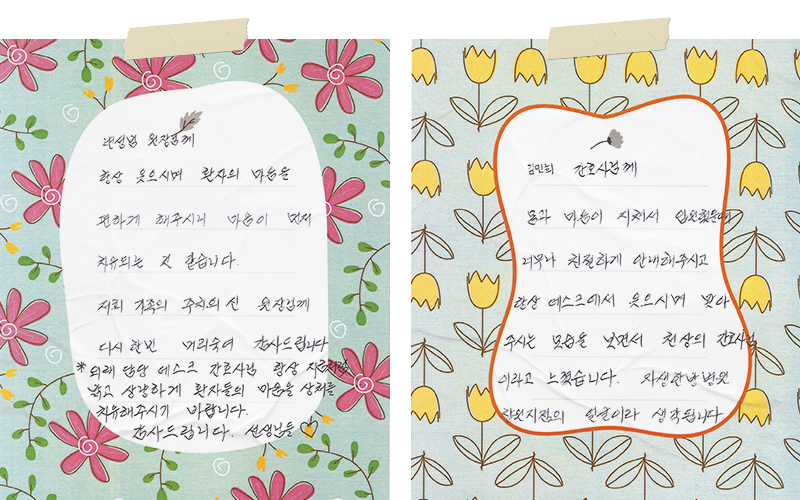 선생님 원장님께
항상 웃으시며 환자의 마음을
편하게 해주시니 마음이 먼저
치유되는 것 같습니다.
저희 가족의 주치의신 원장님께
다시 한번 머리숙여 감사드립니다
*외래 담당 데스크 간호사님 항상 지금처럼
밝고 상냥하게 환자들의 마음을 상처를
치유해주시기 바랍니다.
감사드립니다. 선생님들
김민희 간호사님께
몸과 마음이 지쳐서 입원했을때
너무나 친절하게 안내해주시고
항상 데스크에서 웃으시며 맞아
주시는 모습을 보면서 천상의 간호사님
이라고 느꼈습니다. 자생한방병원
창원지점의 얼굴이라 생각됩니다